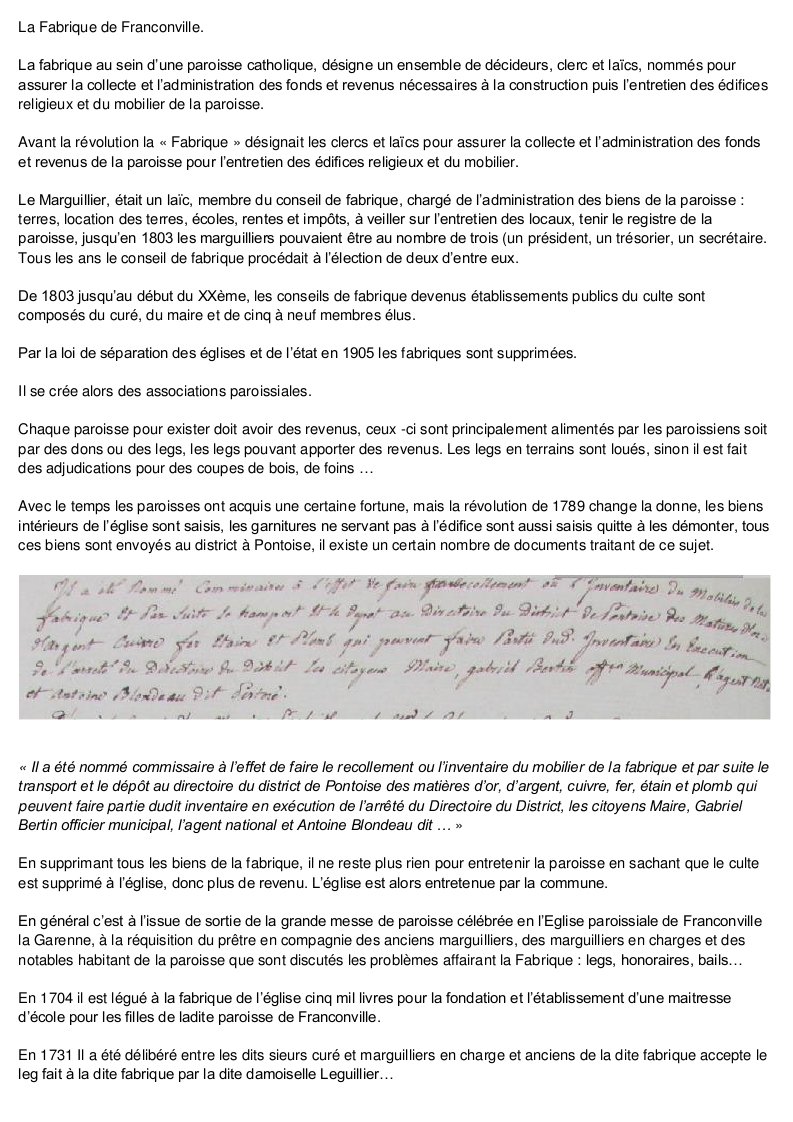 La Fabrique de Franconville.
La fabrique au sein d'une paroisse catholique, désigne un ensemble de décideurs, clerc et laïcs, nommés pour
assurer la collecte et l'administration des fonds et revenus nécessaires à la construction puis l'entretien des édifices
religieux et du mobilier de la paroisse.
Avant la révolution la « Fabrique » désignait les clercs et laïcs pour assurer la collecte et l'administration des fonds
et revenus de la paroisse pour l'entretien des édifices religieux et du mobilier.
Le Marguillier, était un laïc, membre du conseil de fabrique, chargé de l'administration des biens de la paroisse :
terres, location des terres, écoles, rentes et impôts, à veiller sur l'entretien des locaux, tenir le registre de la
paroisse, jusqu'en 1803 les marguilliers pouvaient être au nombre de trois (un président, un trésorier, un secrétaire.
Tous les ans le conseil de fabrique procédait à l'élection de deux d'entre eux.
De 1803 jusqu'au début du XXème, les conseils de fabrique devenus établissements publics du culte sont
composés du curé, du maire et de cinq à neuf membres élus.
Par la loi de séparation des églises et de l'état en 1905 les fabriques sont supprimées.
Il se crée alors des associations paroissiales.
Chaque paroisse pour exister doit avoir des revenus, ceux -ci sont principalement alimentés par les paroissiens soit
par des dons ou des legs, les legs pouvant apporter des revenus. Les legs en terrains sont loués, sinon il est fait
des adjudications pour des coupes de bois, de foins …
Avec le temps les paroisses ont acquis une certaine fortune, mais la révolution de 1789 change la donne, les biens
intérieurs de l'église sont saisis, les garnitures ne servant pas à l'édifice sont aussi saisis quitte à les démonter, tous
ces biens sont envoyés au district à Pontoise, il existe un certain nombre de documents traitant de ce sujet.
Il a été Nommé Commissaires à l'effet de faire recollement ou l'Inventaire du Mobilier de la
fabrique Et Par Suite le transport Et le Depot au Directoire du District de Pontoise des Matieres D'or
d'Argent Cuivre fer Etain Et Plomb qui peuvent faire Partie dud. Inventaire En Execution
de l'arreté du Directoire du District les citoyens Maire, gabriel Bertin off. Municipal, L'agent Nat.
et Antoine Blondeau dit
« Il a été nommé commissaire à l'effet de faire le recollement ou l'inventaire du mobilier de la fabrique et par suite le
transport et le dépôt au directoire du district de Pontoise des matières d'or, d'argent, cuivre, fer, étain et plomb qui
peuvent faire partie dudit inventaire en exécution de l'arrêté du Directoire du District, les citoyens Maire, Gabriel
Bertin officier municipal, l'agent national et Antoine Blondeau dit … »
En supprimant tous les biens de la fabrique, il ne reste plus rien pour entretenir la paroisse en sachant que le culte
est supprimé à l'église, donc plus de revenu. L'église est alors entretenue par la commune.
En général c'est à l'issue de sortie de la grande messe de paroisse célébrée en l'Eglise paroissiale de Franconville
la Garenne, à la réquisition du prêtre en compagnie des anciens marguilliers, des marguilliers en charges et des
notables habitant de la paroisse que sont discutés les problèmes affairant la Fabrique : legs, honoraires, bails…
En 1704 il est légué à la fabrique de l'église cinq mil livres pour la fondation et l'établissement d'une maitresse
d'école pour les filles de ladite paroisse de Franconville.
En 1731 Il a été délibéré entre les dits sieurs curé et marguilliers en charge et anciens de la dite fabrique accepte le
leg fait à la dite fabrique par la dite damoiselle Leguillier…